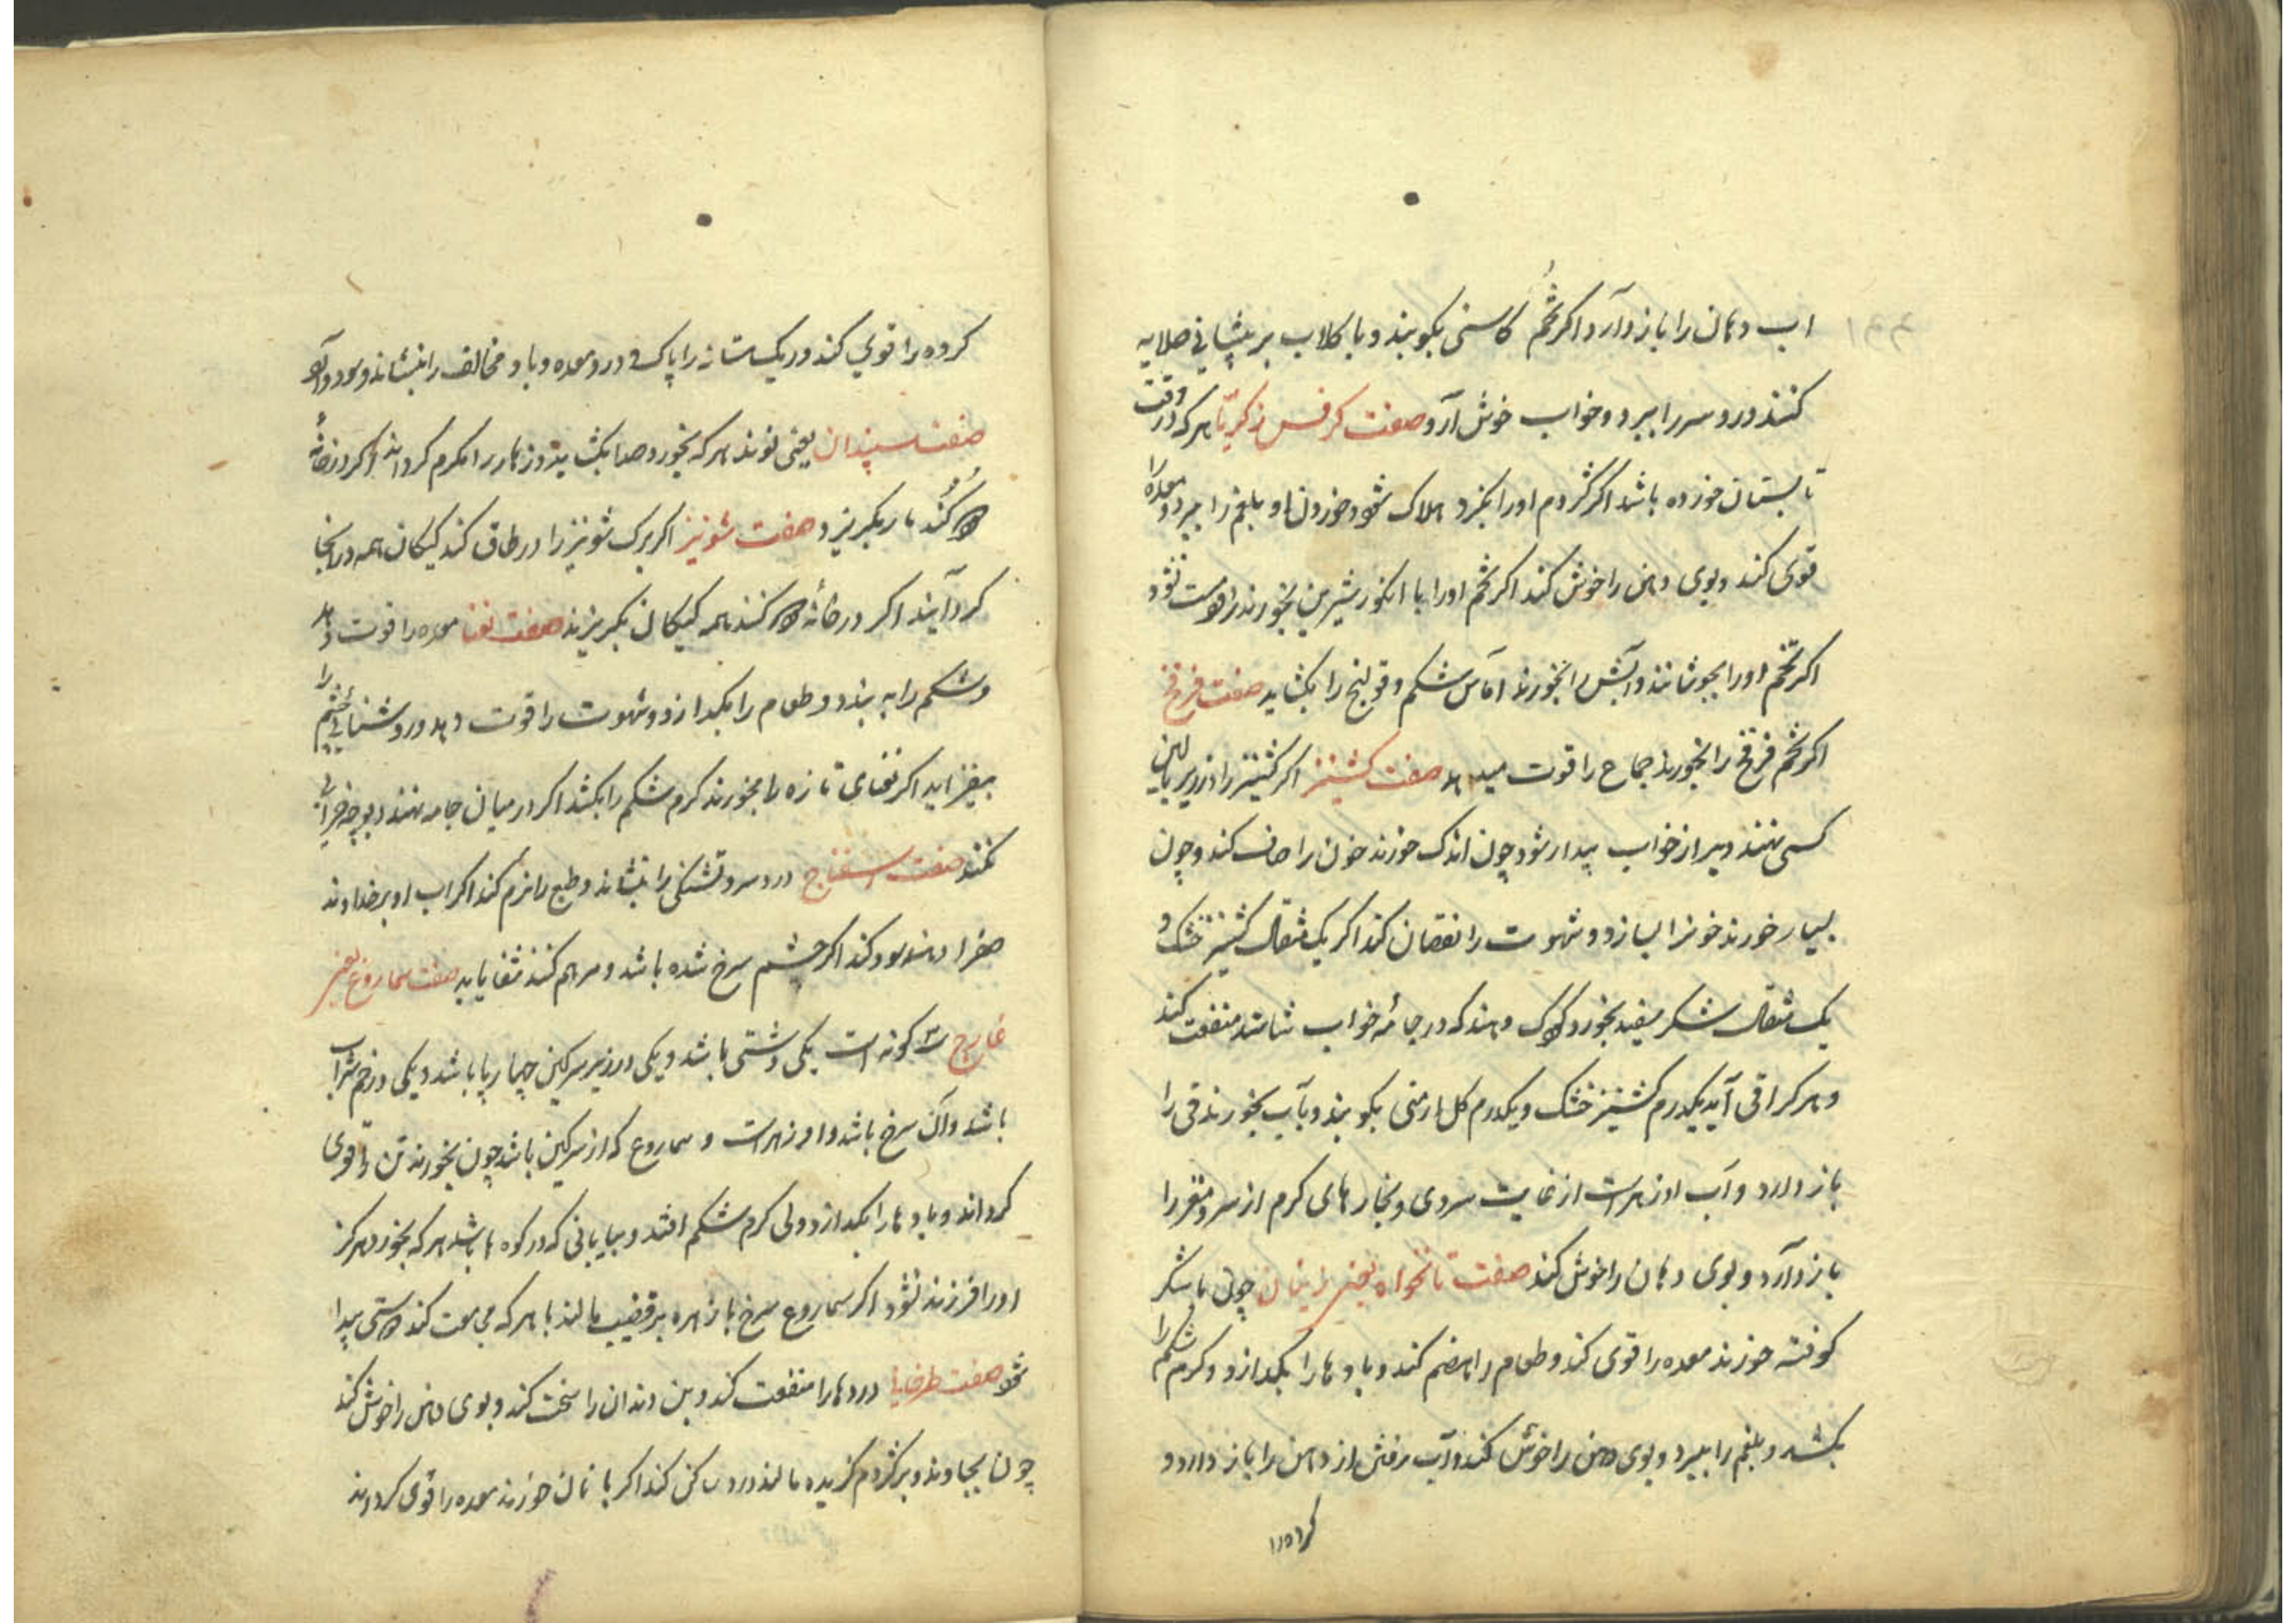 اب دهان را باز دارد اکر تُخم کاسنی بکوبند و با کلاب بر پیشانی صلایه
کنند درد سر را ببرد و خواب خوش آرد صفت کرفس زکریّا هرکه در وقت
تابستان خورده باشد اکر کژدم او را بکزد هلاک شود و خوردن او بلغم را ببرد و معده را
قوی کند و بوی دهن را خوش کند اکر تخم او را با انکور شیرین بخورند مست نشود
اکر تخم او را بجوشانند و آبش را بخورند آماس شکم و قولنج را بکشاید صفت فرفخ
اکر تخم فرفخ را بخورند جماع را قوت میدهد صفت کشنیز اکر کشنیز را در زیر بالین
کسی نهند دیر از خواب بیدار شود چون اندک خورند خون را صاف کند و چون
بسیار خورند خونرا بسازد و شهوت را نقصان کند اکر یک مثقال کشنیز خشک و
یک مثقال شکر سفید بخورد کودک دهند که در جامهٔ خواب شاشد منفعت کند
و هرکرا قی آید یکدرم کشنیز خشک و یکدرم کل ارمنی بکوبند و بآب بخورند قی را
باز دارد و آب او زهرست از غایت سردی و بخارهای کرم از سر و مغز را
باز دارد و بوی دهان را خوش کند صفت نانخواه یعنی زنیان چون با شکر
کوفته خورند معده را قوی کند و طعام را هضم کند و بادها را بکدازد و کرم شکم را
بکشد و بلغم را ببرد و بوی دهن را خوش کند و آب رفتن از دهن را باز دارد و
کرده را
کرده را قوی کند و ریک مثانه را پاک و درد معده و باد مخالف را بنشاند و سود دارد
صفت سپندان یعنی نوند هرکه بخورد صدا بکشاید و زهار را کرم کرداند و اکر در خانه
دود کُنند مار بکریزد صفت شونیز اکر برک شونیز را در طاق کند کیکان همه در آنجا
کرد آیند اکر در خانهٔ دود کنند همه کیکان بکریزند صفت نعنا معده را قوت دهد
و شکم را به بندد و طعام را بکدازد و شهوت را قوت دهد و روشنایی چشم را
بیفزاید اکر نعنای تازه را بخورند کرم شکم را بکشد اکر در میان جامه نهند دیوچه خرابی
نکند صفت اسفناج درد سر و تشنکی را بنشاند و طبع را نرم کند اکر اب او بر خداوند
صفرا دهند سود کند اکر چشم سرخ شده باشد و مرهم کنند شفا یابد صفت سماروغ یعنی
غارج سه کونه است یکی دشتی باشد و یکی در زیر سرکین چهارپا باشد و یکی در خم شراب
باشد و آن سرخ باشد و او زهرست و سماروغ که از سرکین باشد چون بخورند تن را قوی
کرداند و بادها را بکدازد ولی کرم شکم افتد و بیابانی که در کوه ها باشد هرکه بخورد هرکز
او را فرزند نشود اکر سماروغ سرخ با زهره بر قضیب مالند با هرکه مجامعت کند دوستی پیدا
شود صفت طرخانا دردها را منفعت کند و بن دندان را سخت کند و بوی دهن را خوش کند
چون بجاوند و بر کژدم کزیده مالند درد ساکن کند اکر با نان خورند معده را قوی کرداند